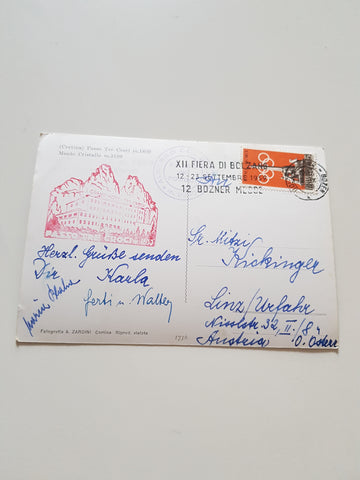 (Cortina) Passo Tre Croci m.1809
Monte Cristallo m.3199
XII FIERA DI BOLZANO
12-22 SETTEMBRE 1959
12. BOZNER MESSE
TRE CROCI
Herzl. Grüße senden
Die Karla
Gerti u. Walter
An
Fr. Mitzi
Kickinger
Linz/Urfahr
Nisslstr. 32, II/8
Austria O. Österr
Fotografia A. ZARDINI Cortina Riprod. vietata